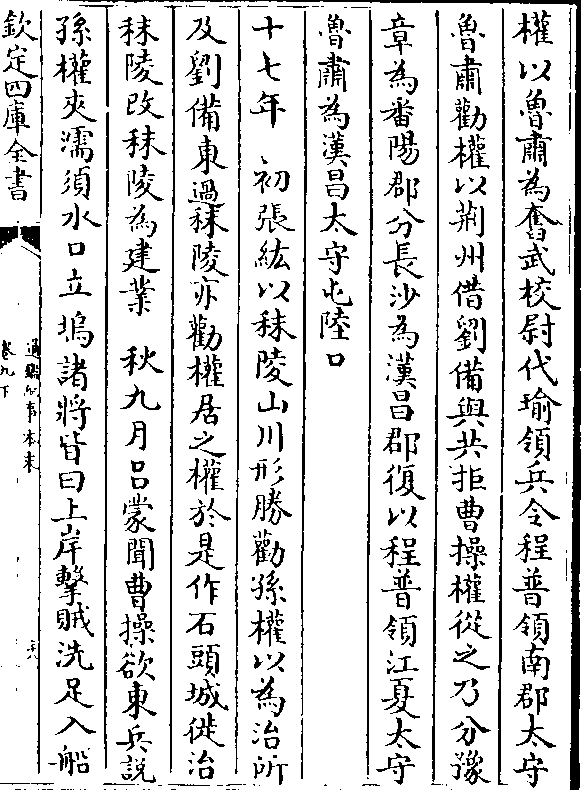 權以魯肅為奮武校尉代瑜領兵令程普領南郡太守
魯肅勸權以荆州借劉備與共拒曹操權從之乃分豫
章為番陽郡分長沙為漢昌郡復以程普領江夏太守
魯肅為漢昌太守屯陸口
十七年 初張紘以秣陵山川形勝勸孫權以為治所
及劉備東過秣陵亦勸權居之權於是作石頭城徙治
秣陵改秣陵為建業 秋九月吕蒙聞曹操欲東兵説
孫權夾濡須水口立塢諸將皆曰上岸擊賊洗足入船
欽定四庫全書
通鑑紀事本末
卷九下